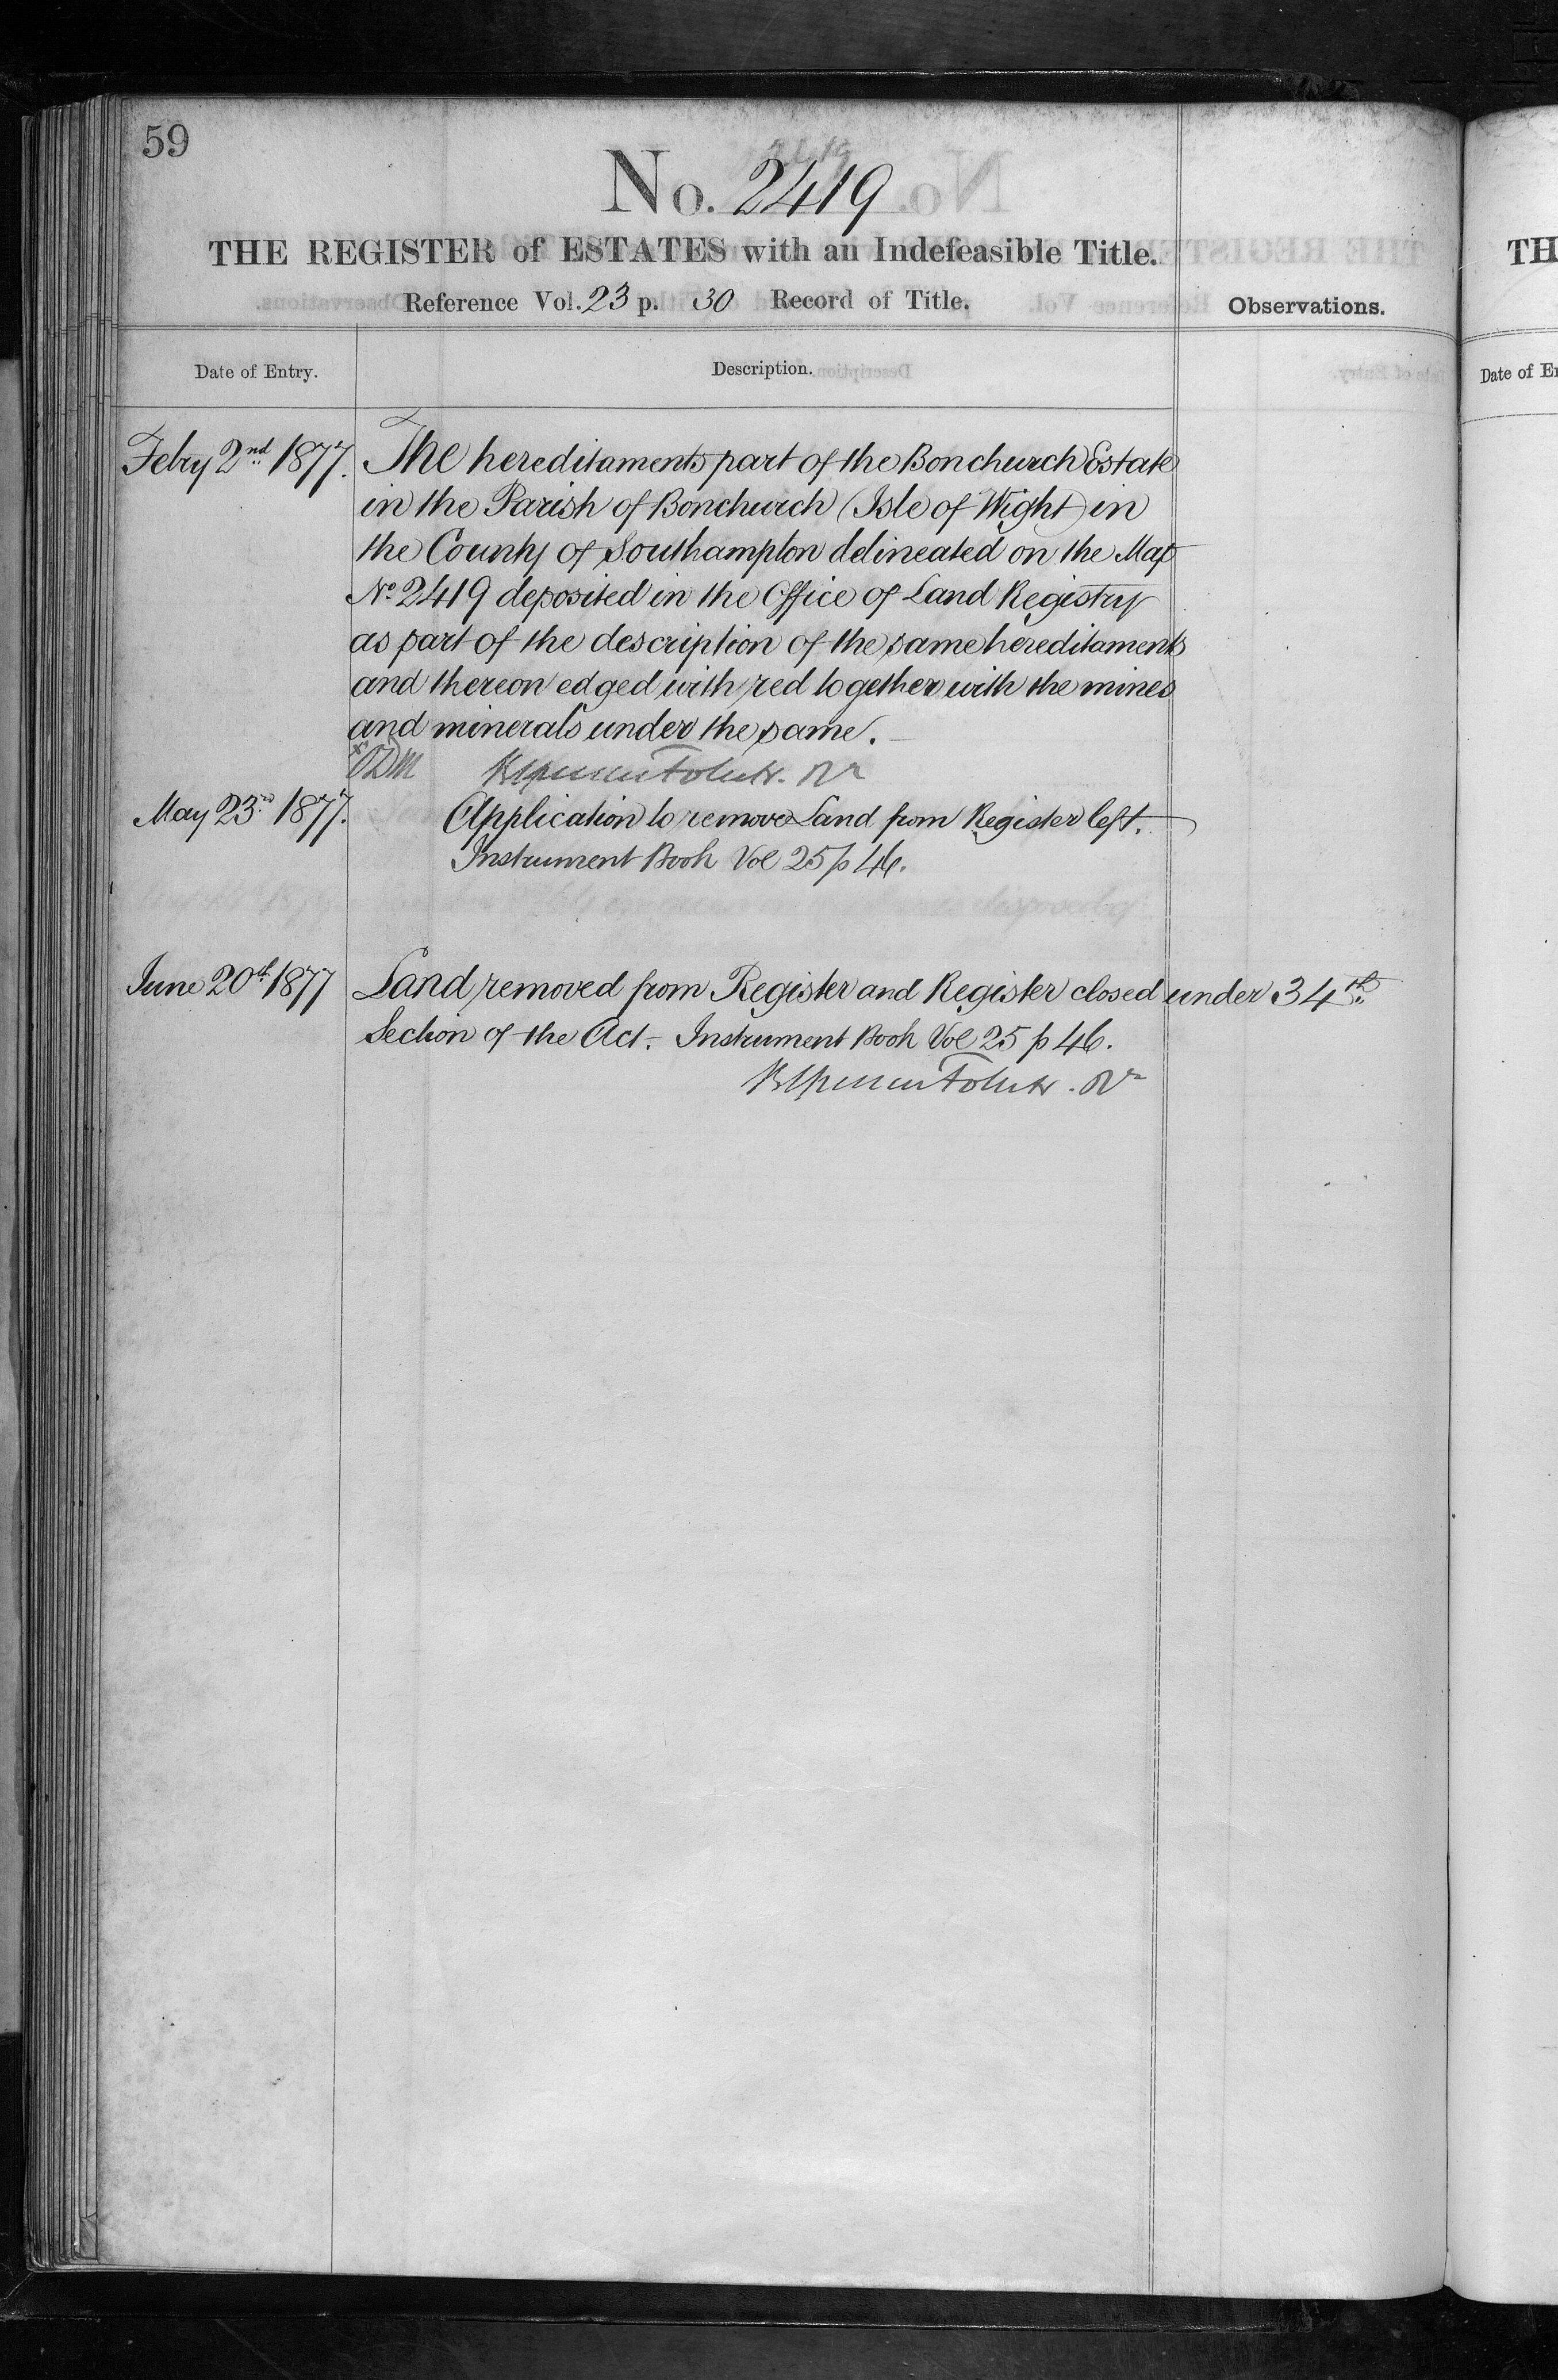 59
No. 2419
THE REGISTER of ESTATES with an Indefeasible Title.
Reference Vol. 23 p. 30 Record of Title.
Observations.
Date of Entry.
Description.
Febry 2nd 1877.
The hereditaments part of the Bonchurch Estate
in the Parish of Bonchurch (Isle of Wight) in
the County of Southampton delineated on the Map
No 2419 deposited in the Office of Land Registry
as part of the description of the same hereditaments
and thereon edged with red together with the mines
and minerals under the same.
May 23rd 1877.
Application to remove Land from Register left.
Instrument Book Vol 25 p 46.
June 20th 1877
Land removed from Register and Register closed under 34th
Section of the Act. Instrument Book Vol 25 p 46.
TH
Date of En